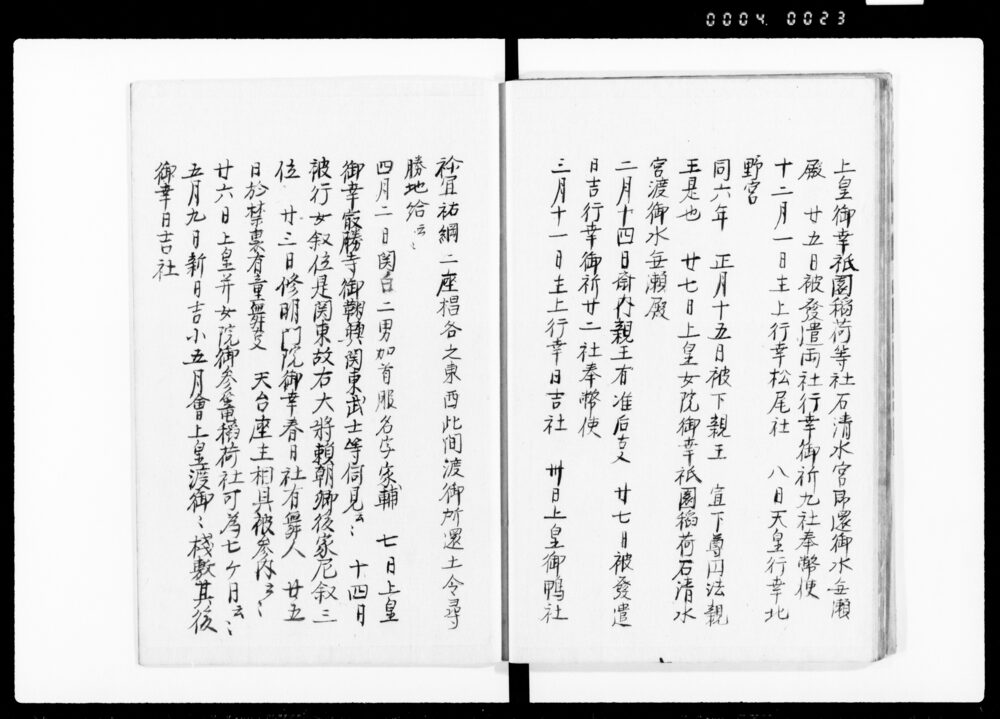 0004 0023
上皇御幸祇園稲荷等社石清水宮即還御水無瀬
殿　廿五日被發遣両社行幸御祈九社奉幣使
十二月一日主上行幸松尾社　八日天皇行幸北
野宮
同六年　正月十五日被下親王　宣下尊円法親
王是也　廿七日上皇女院御幸祇園稲荷石清水
宮渡御水無瀬殿
二月十四日斎内親王有准后事　廿七日被發遣
日吉行幸御祈廿二社奉幣使
三月十一日主上行幸日吉社　卅日上皇御鴨社
祢宜祐綱二座椙谷之東西此间渡御所還土令尋
勝地給云〻
四月二日関白二男加首服名字家輔　七日上皇
御幸最勝寺御鞠興関東武士等伺見云〻　十四日
被行女叙位是関東故右大将頼朝卿後家尼叙三
位　廿三日修明門院御幸春日社有舞人　廿五
日於禁裏有童舞事　天台座主相具被参内云〻
廿六日上皇并女院御参篭稲荷社可為七ケ日云〻
五月九日新日吉小五月會上皇渡御〻桟敷其後
御幸日吉社